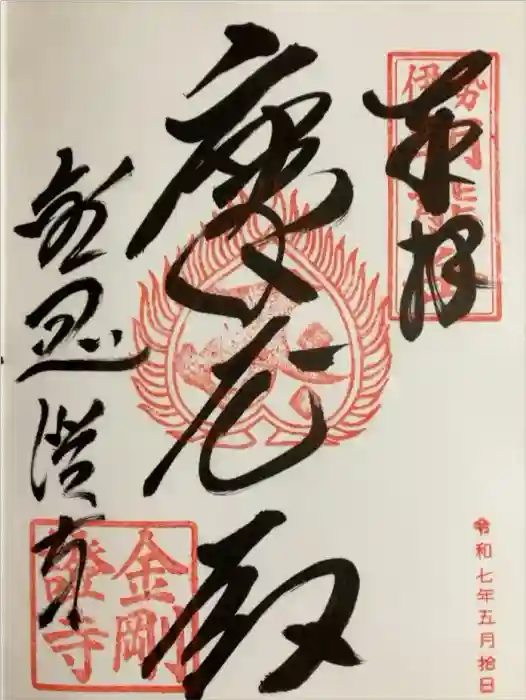 奉拝
伊勢
摩尼殿
金剛證寺
金剛證寺
令和七年五月拾日